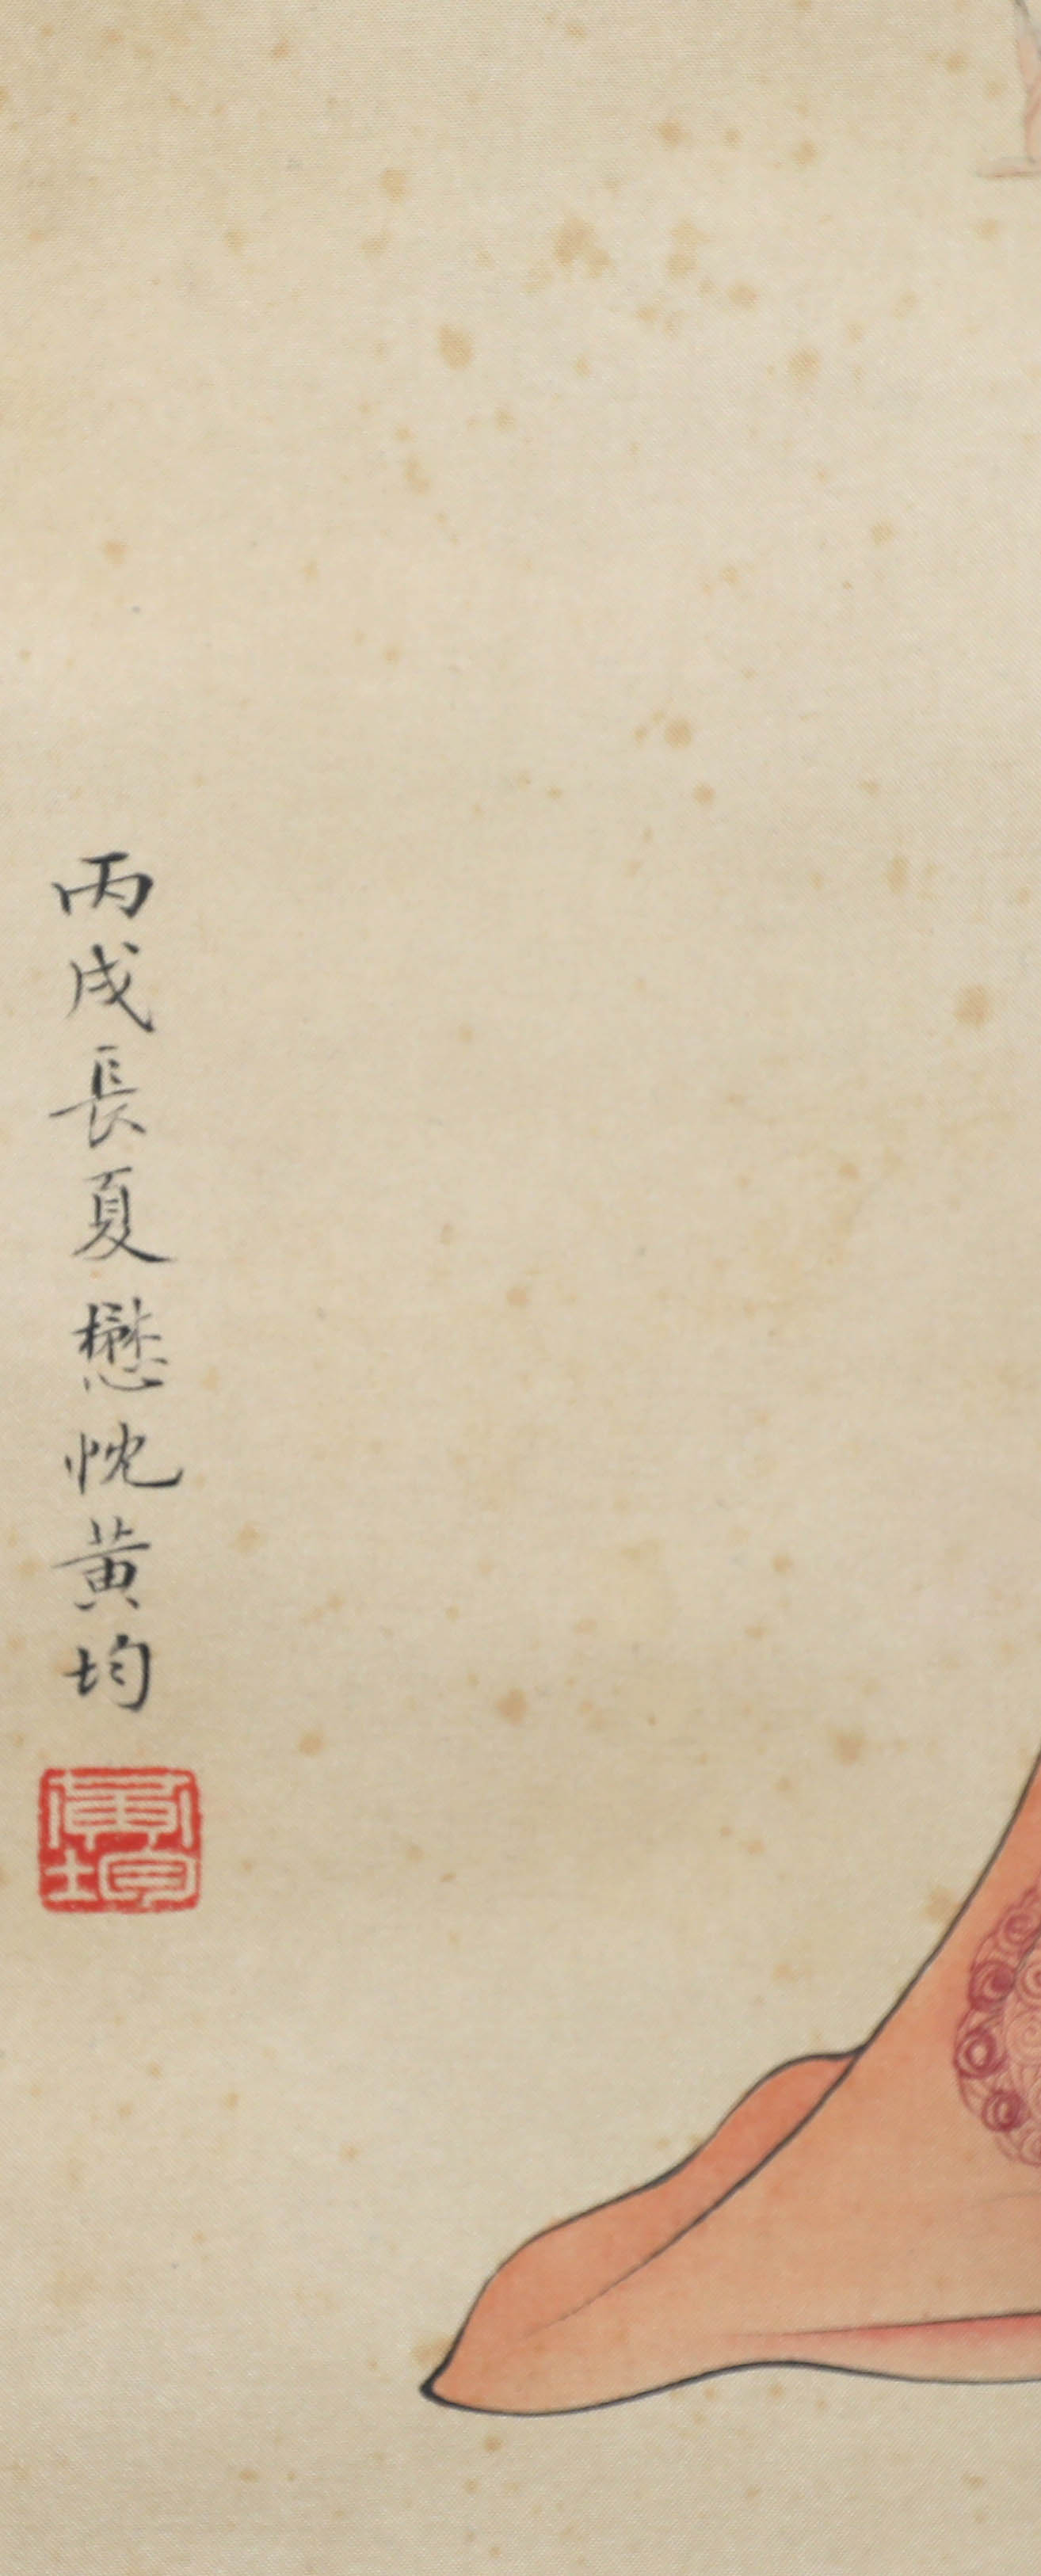 丙戌長夏懋忱黄均
黄均